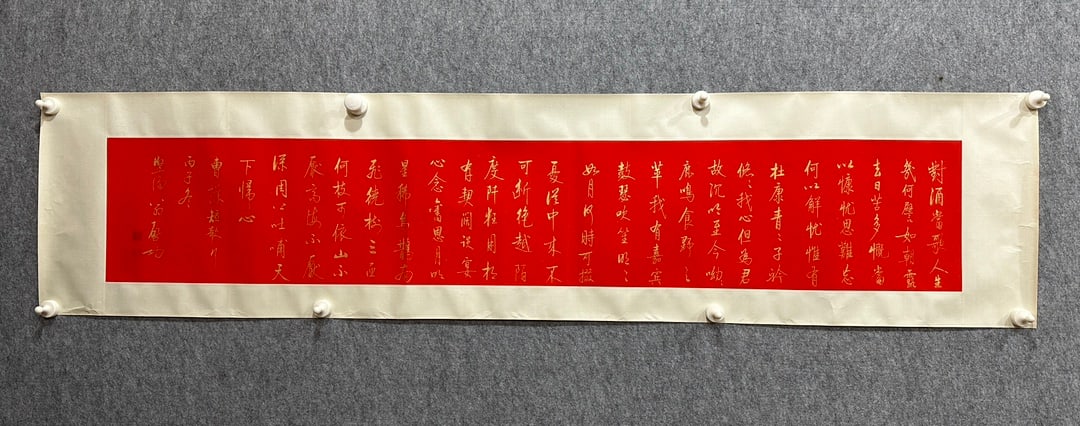 對酒當歌人生
幾何譬如朝露
去日苦多慨當
以慷忧思難忘
何以解忧惟有
杜康青々子衿
悠々我心但為君
故沉吟至今呦々
鹿鳴食野之
苹我有嘉賓
鼓瑟吹笙明々
如月何時可掇
憂從中來不
可斷絕越陌
度阡枉用相
存契闊談宴
心念舊恩月明
星稀烏鵲南
飛繞樹三匝
何枝可依山不
厭高海不厭
深周公吐哺天
下歸心
曹 短歌行
丙子冬